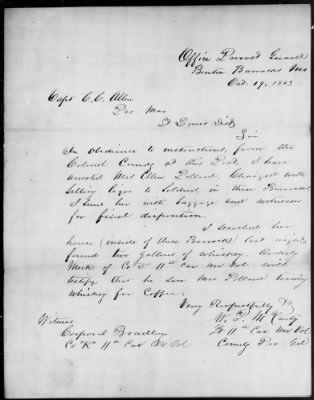 Office Provost Guard
Benton Barracks Mo
Oct. 19, 1863
Capt C. C. Allen
Pro Mar
St Louis Dist
Sir
In obedience to instructions, from the
Colonel Comdg at this Post, I have
arrested Mrs Ellen Pollard, Charged with
Selling liqor to Soldiers, in these Barracks
I send her with baggage and witnesses
for final disposition.
I searched her
house (inside of these Barracks) last night
found two gallons of whiskey. Orderly
of Co 11th Cav Mo Vol will
testify that he saw Mrs Pollard
whiskey for Coffee.
Very Respectfully
W. P.
11th Cav Mo Vol
Comdg Pro Gd
Witness
Corporal
Co "K" 11th Cav Mo Vol